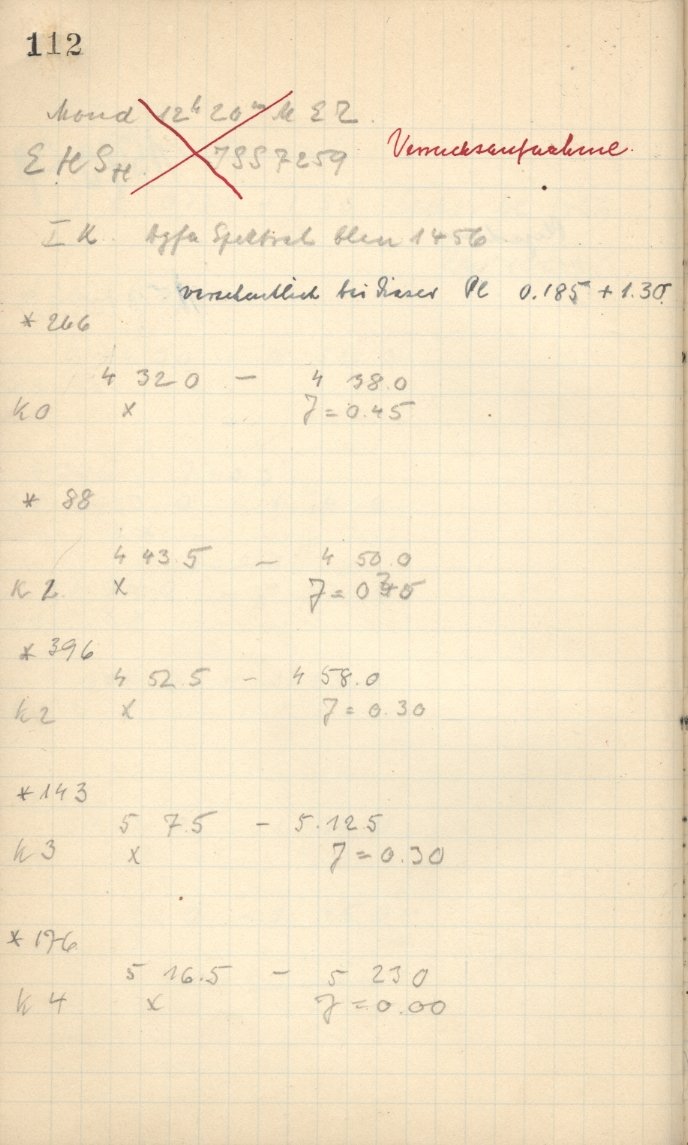 112
Mond 12h 20m M E Z.
E H S H. JSS7259
Versuchsaufnahme.
I K. Agfa Spektral blau 1456
versehentlich bei dieser Pl 0.185 + 1.30
* 266
4 32 0 – 4 38.0
K0 x J = 0.45
* 88
4 43 5 – 4 50.0
K 2 x
* 396
4 52 5 – 4 58.0
K2 x J = 0.30
* 143
5 7.5 – 5.12 5
K 3 x J = 0.30
* 176
5 16.5 – 5 23 0
K 4 x J = 0.00